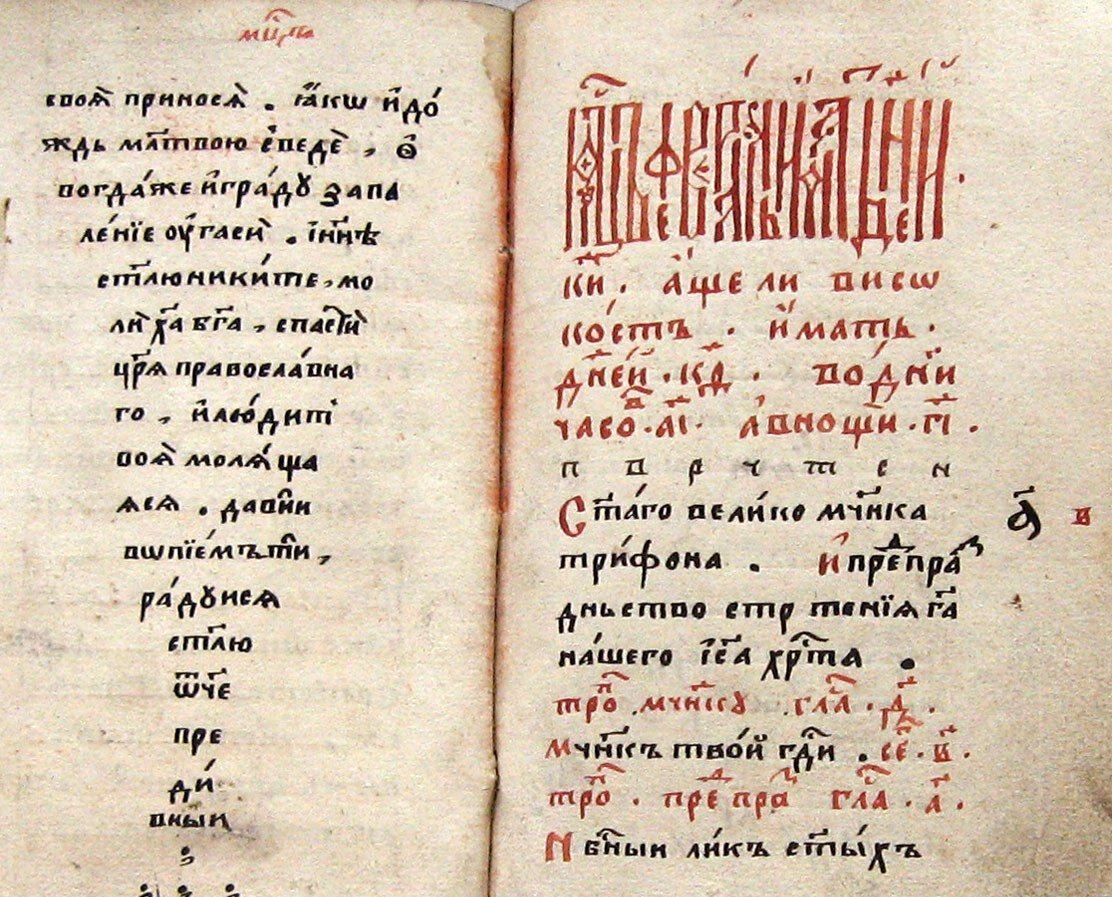 мц҃ъ
своѧ̀ приносѧ̀ . ꙗ҆́кѡ и҆до́
ждь мл҃твою с҆ведѐ , ѻ҆
вогда́же и҆гра́дꙋ запа
ле́нїе оу҆гасѝ . ін҃нѣ
ст҃лю никѝте , мо
лѝ хрⷭ҇а бг҃а , спастѝ
цр҃ѧ правосла́вна
го , и҆лю́ди т
воѧ̀ молѧ́ща
ѧсѧ . да всѝ
вопїе́мътѝ ,
ра́дꙋисѧ
ст҃лю
ѿч҃е
пре
ди́
вныи
кѝ . а҆́щели висѡ
ко́стъ . и҆́мать .
дн҃е́й . к҃д . во́дн҃и
часо́в . а҃і . а҆́внощѝ . г҃і .
п в р ч т е н
Ст҃а́го вели́комч҃нка
три́фона . и҆ прⷣепра́з
дньство стртенїѧ гⷭ҇а
на́шего і҆с҃а хрⷭ҇та̀ .
тро́п . мч҃нкꙋ . гла́ . д҃ .
Мч҃нкъ твои̇̀ гдⷭ҇и . се́ . в҃ .
тро́п . прⷣепра́з гла́ . а҃ .
Нбⷭ҇ныи ликъ ст҃ы́хъ
а҃ в